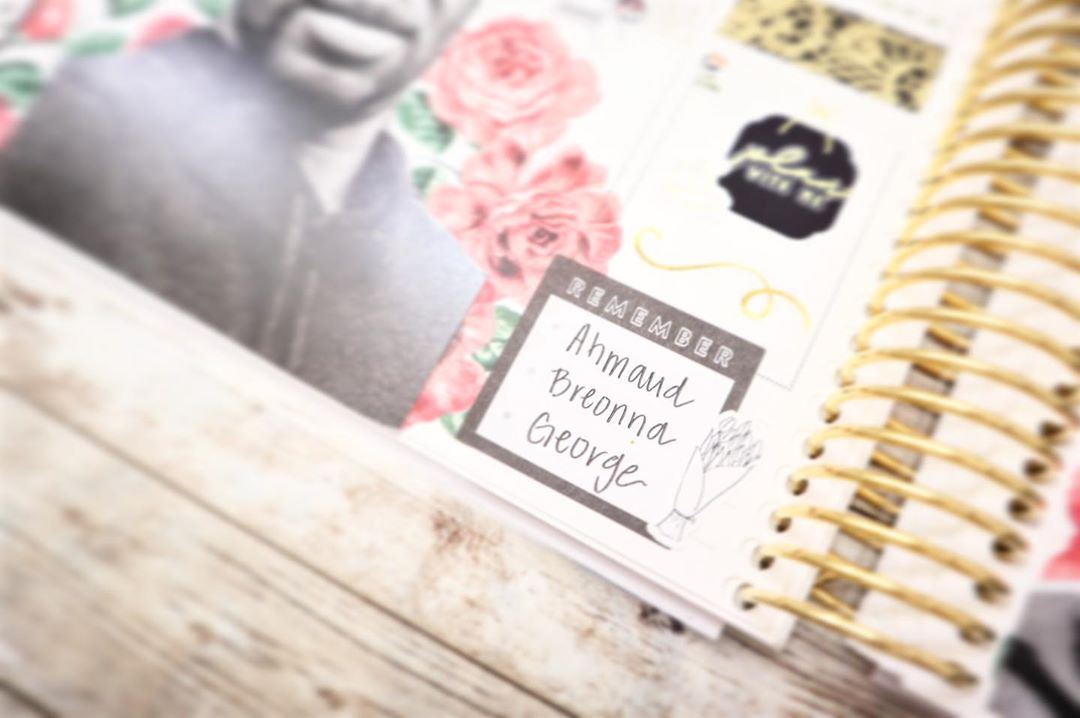 play
WITH ME
REMEMBER
Ahmaud
Breonna
George